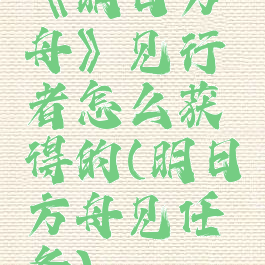 《明日方
舟》见行
者怎么获
得的(明日
方舟见任
务)